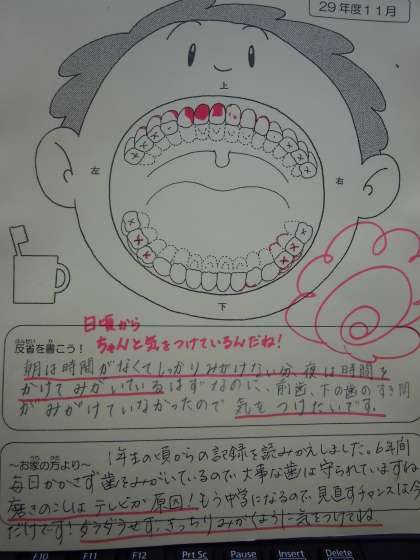 29年度11月
上
左
右
下
日頃から
ちゃんと気をつけているんだね!
はんせい か
反省を書こう!
朝は時間がなくてしっかりみがけない分、夜は時間を
かけてみがいているはずなのに、前歯、下の歯のすき間
がみがけていなかったので気をつけたいです。
～お家の方より～
1年生の頃からの記録を読みかえしました。6年間
毎日かかさず歯をみがいているので大事な歯は守られていますね
磨きのこしはテレビが原因!もう中学になるので、見直すチャンスは今
だけです!ダラダラせず、きっちりみがくように気をつけてね
F10 F11 F12 Prt Sc Pause Insert Delete